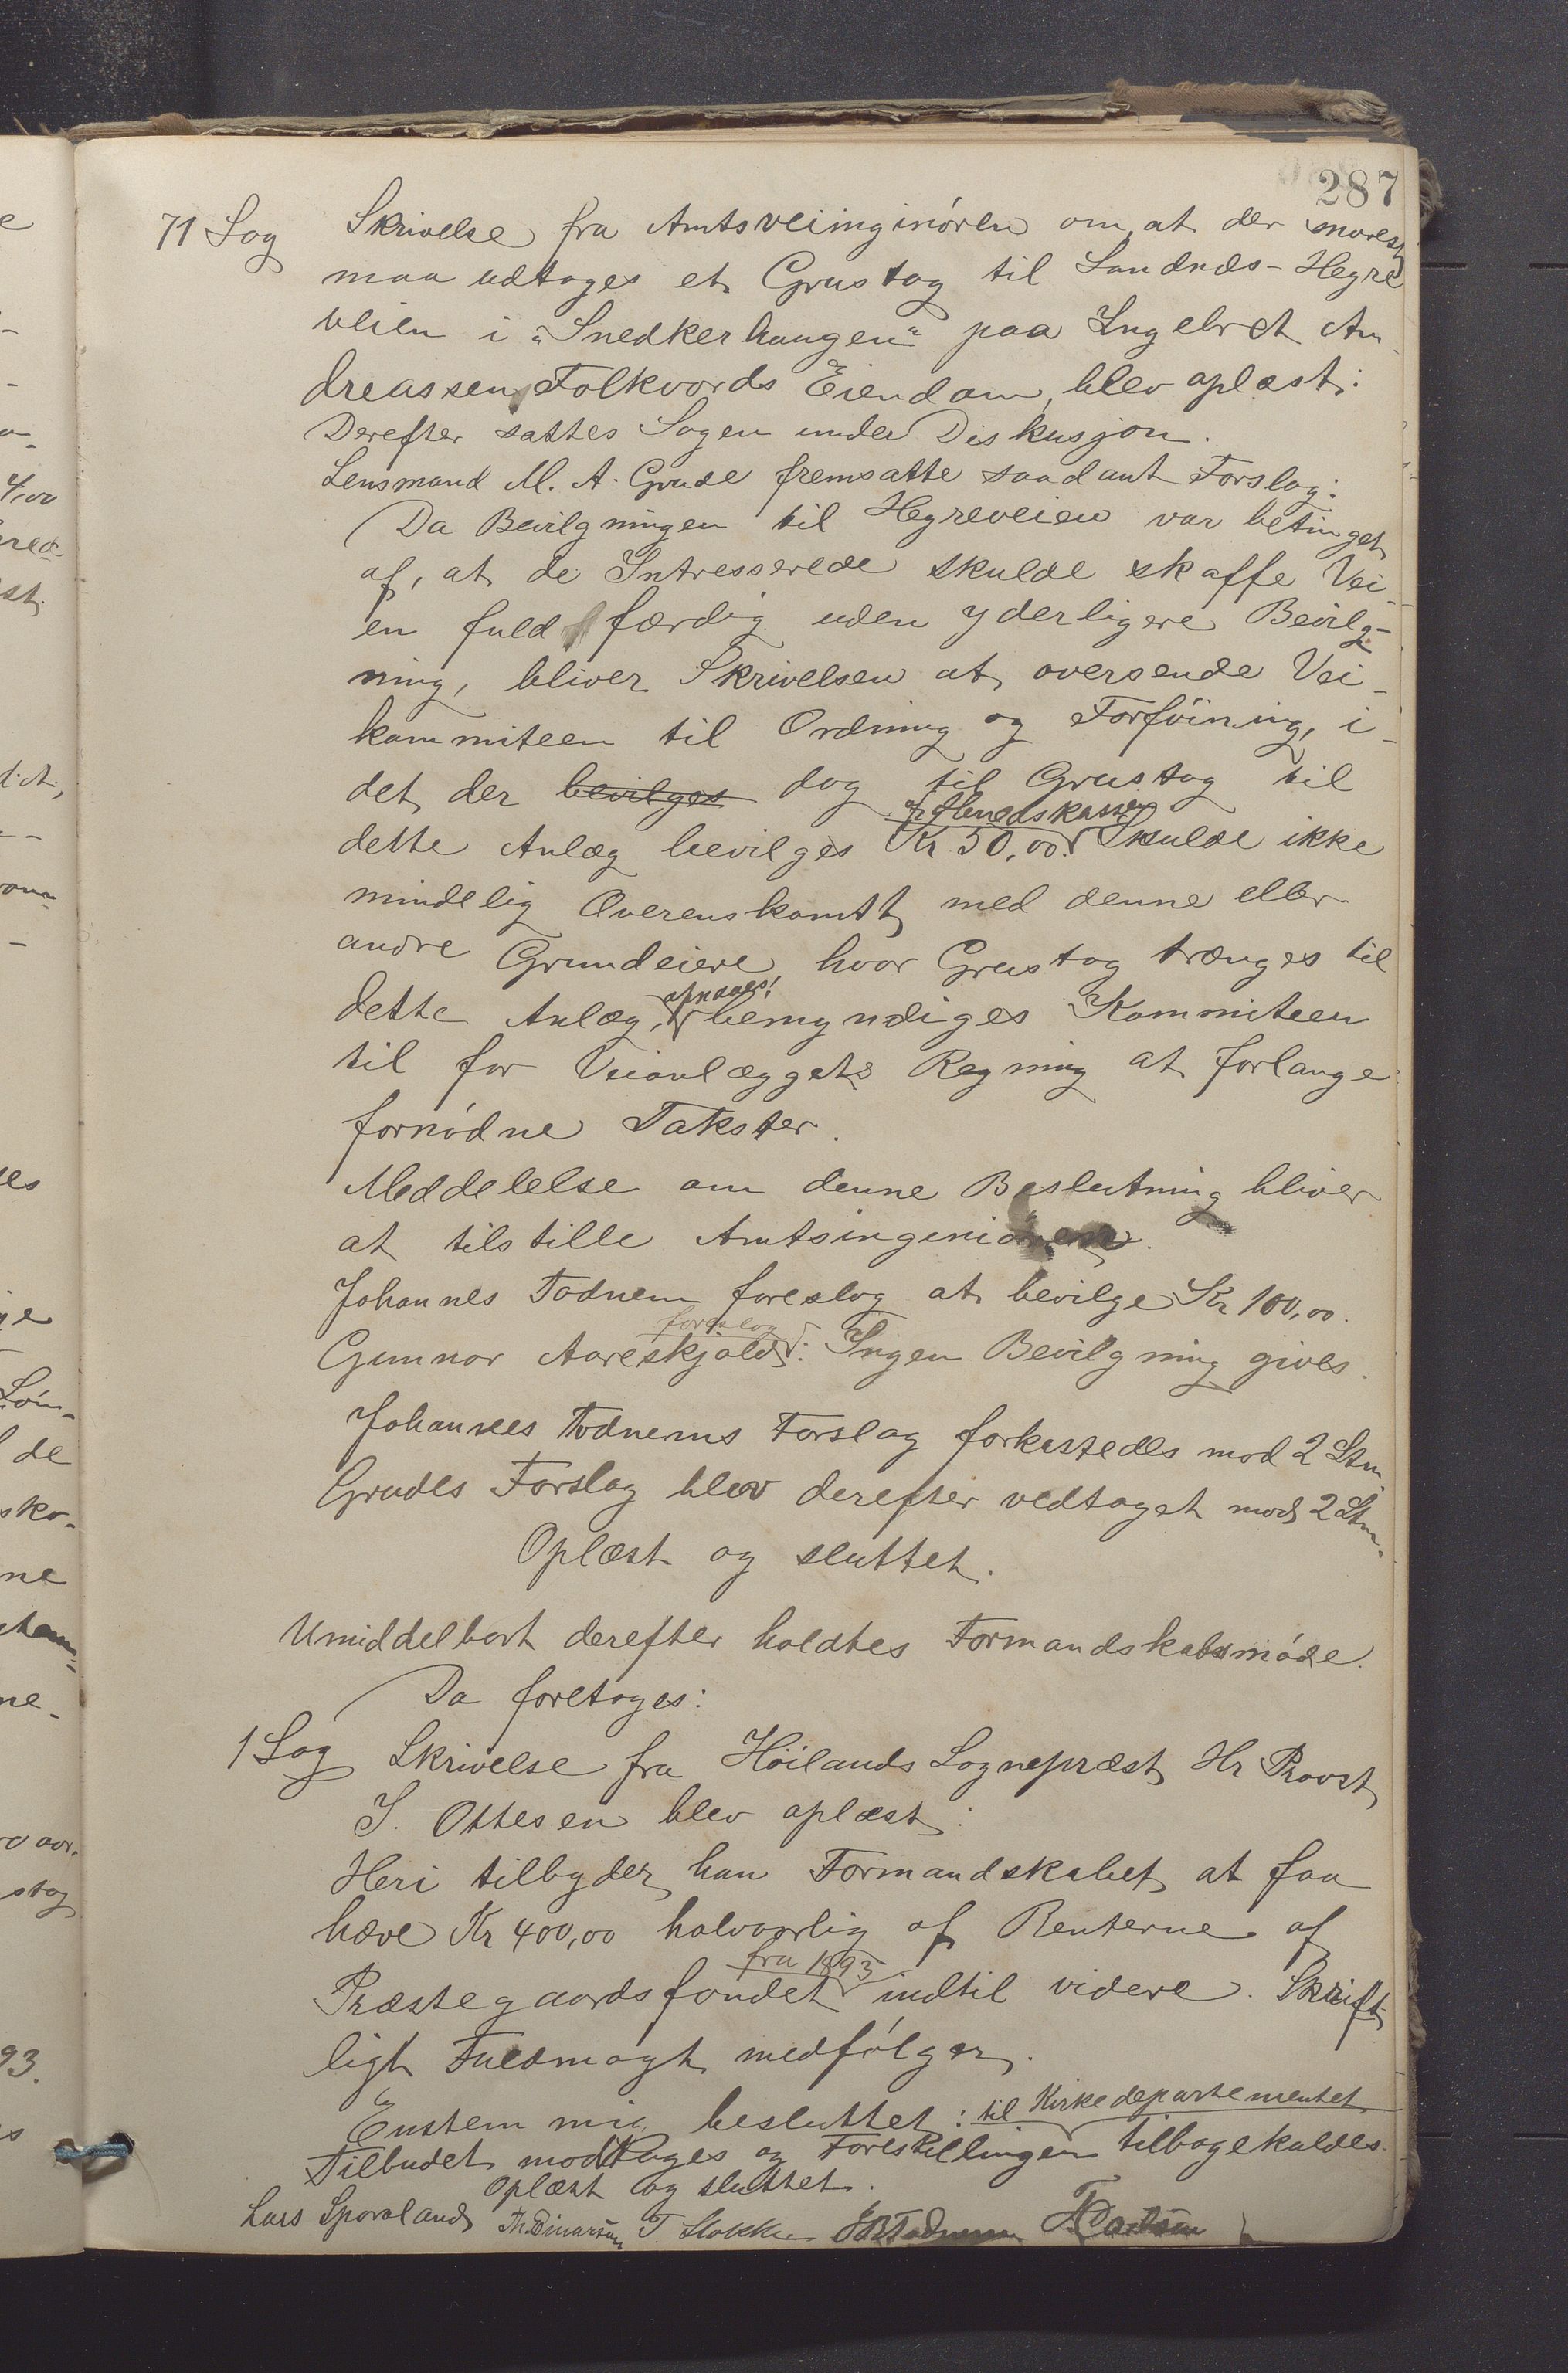 287
71 Sag Skrivelse fra Amtsveiinginøren om, at der snarest
maa udtages et Grustag til Sandnæs-Hegre
veien i "Snedkerhaugen" paa Ingebret An-
dreassen Folkvords Eiendom, blev oplæst:
Derefter sattes Sagen under Diskusjon.
Lensmand M. A. Grude fremsatte saadant Forslag:
Da Bevilgningen til Hegreveien var betinget
af, at de Intresserede skulde skaffe Vei-
en fuldfærdig uden yderligere Bevilg-
ning, bliver Skrivelsen at oversende Vei-
kommiteen til Ordning og Forføining, i-
det der bevilges dog til Grustag til
af Heredskassen
dette Anlæg bevilges Kr 50,00. Skulde ikke
mindelig Overenskomst med denne eller
andre Grundeiere, hvor Grustag trænges til
opnaaes!
dette Anlæg, bemyndiges Kommiteen
til for Veianlæggets Regning at forlange
fornødne Takster.
Meddelelse om denne Beslutning bliver
at tilstille Amtsingeniøren.
Johannes Todnem foreslog at bevilge Kr 100,00.
foreslog
Gunnar Aareskjold: Ingen Bevilgning gives.
Johannes Todnems Forslag forkastedes mod 2 Stm
Grudes Forslag blev derefter vedtaget mod 2 Stm.
Oplæst og sluttet.
Umiddelbart derefter holdtes Formandskabsmøde.
Da foretoges:
1 Sag Skrivelse fra Høilands Sognepræst Hr Provst
I. Ottesen blev oplæst:
Heri tilbyder han Formandskabet at faa
hæve Kr 400,00 halvaarlig af Renterne af
fra 1893
Præstegaardsfondet indtil videre. Skrift-
ligt Fuldmagt medfølger.
Enstemmig besluttet: til Kirkedepartementet
Tilbudet modtages og Forestillingen tilbagekaldes.
Oplæst og sluttet.
Lars Sporaland Th. Einarsen T Stokke